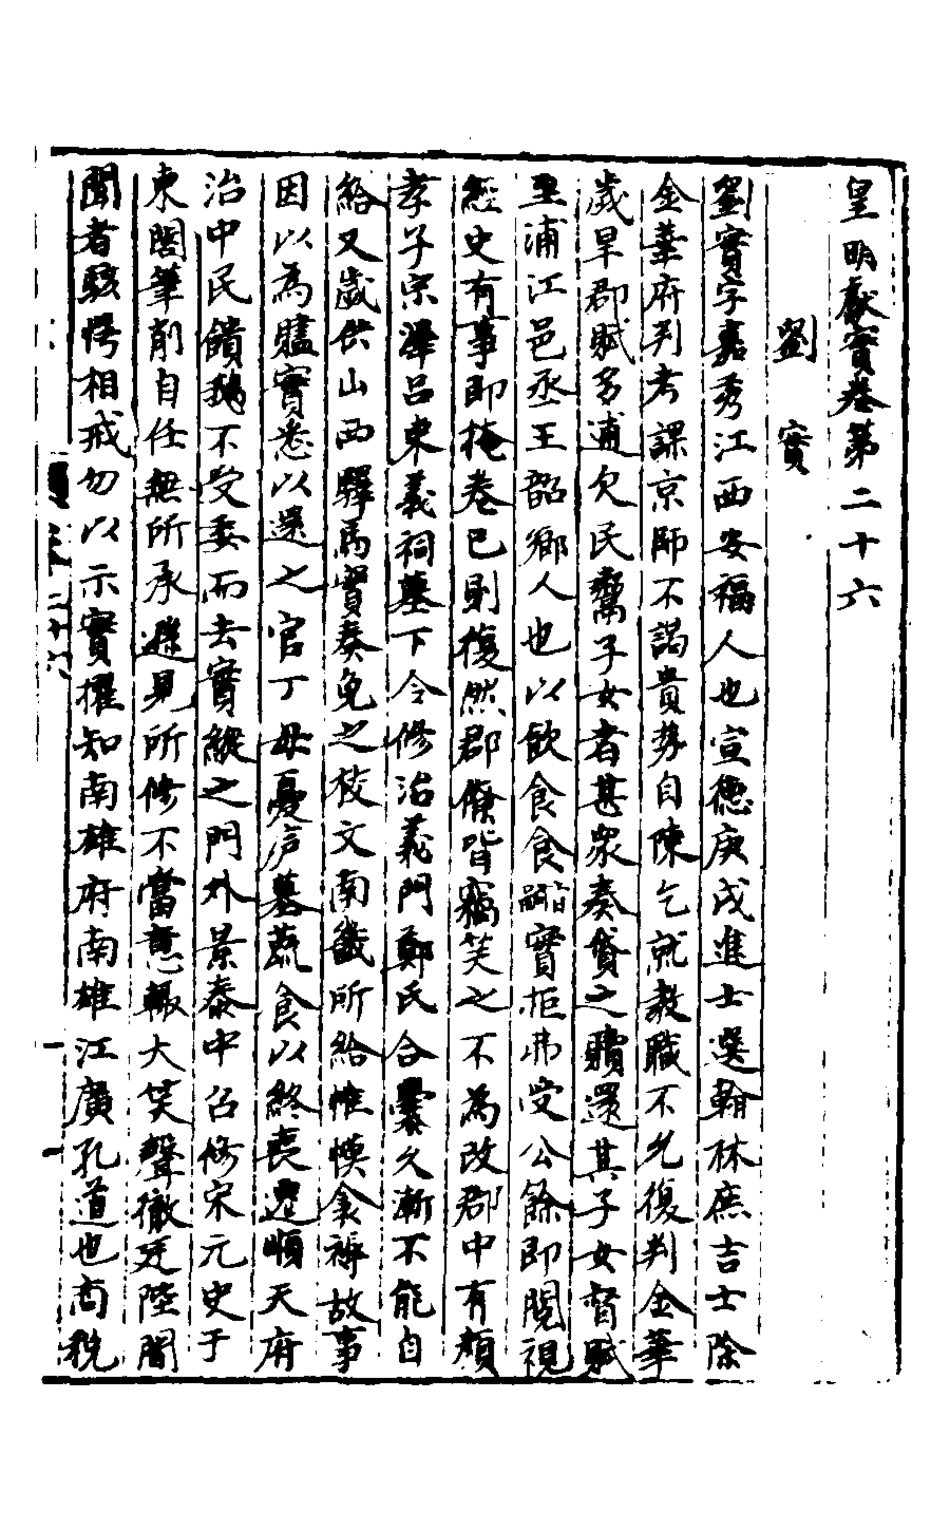 皇明獻實卷第二十六
劉實
劉實字嘉秀江西安福人也宣德庚戌進士選翰林庶吉士除
金華府判考課京師不謁貴勢自陳乞就教職不允復判金華
歲旱郡賦多逋欠民鬻子女者甚衆奏貸之贖還其子女督賦
至浦江邑丞王韶鄉人也以飲食食實拒弗受公餘即閱視
經史有事即掩卷已則復然郡僚皆竊笑之不為改郡中有顏
孝子宗澤呂東義祠墓下令修治義門鄭氏合爨久漸不能自
給又歲供山西驛馬實奏免之校文南畿所給帷幙衾褥故事
因以為贐實悉以還之官丁母憂庐墓蔬食以終喪遷順天府
治中民饋鵝不受委而去實縱之門外景泰中召修宋元史于
東閣筆削自任無所承遜見所修不當意輙大笑聲徹廷陸閣
聞者駭愕相戒勿以示實擢知南雄府南雄江廣孔道也商稅
卷二十六